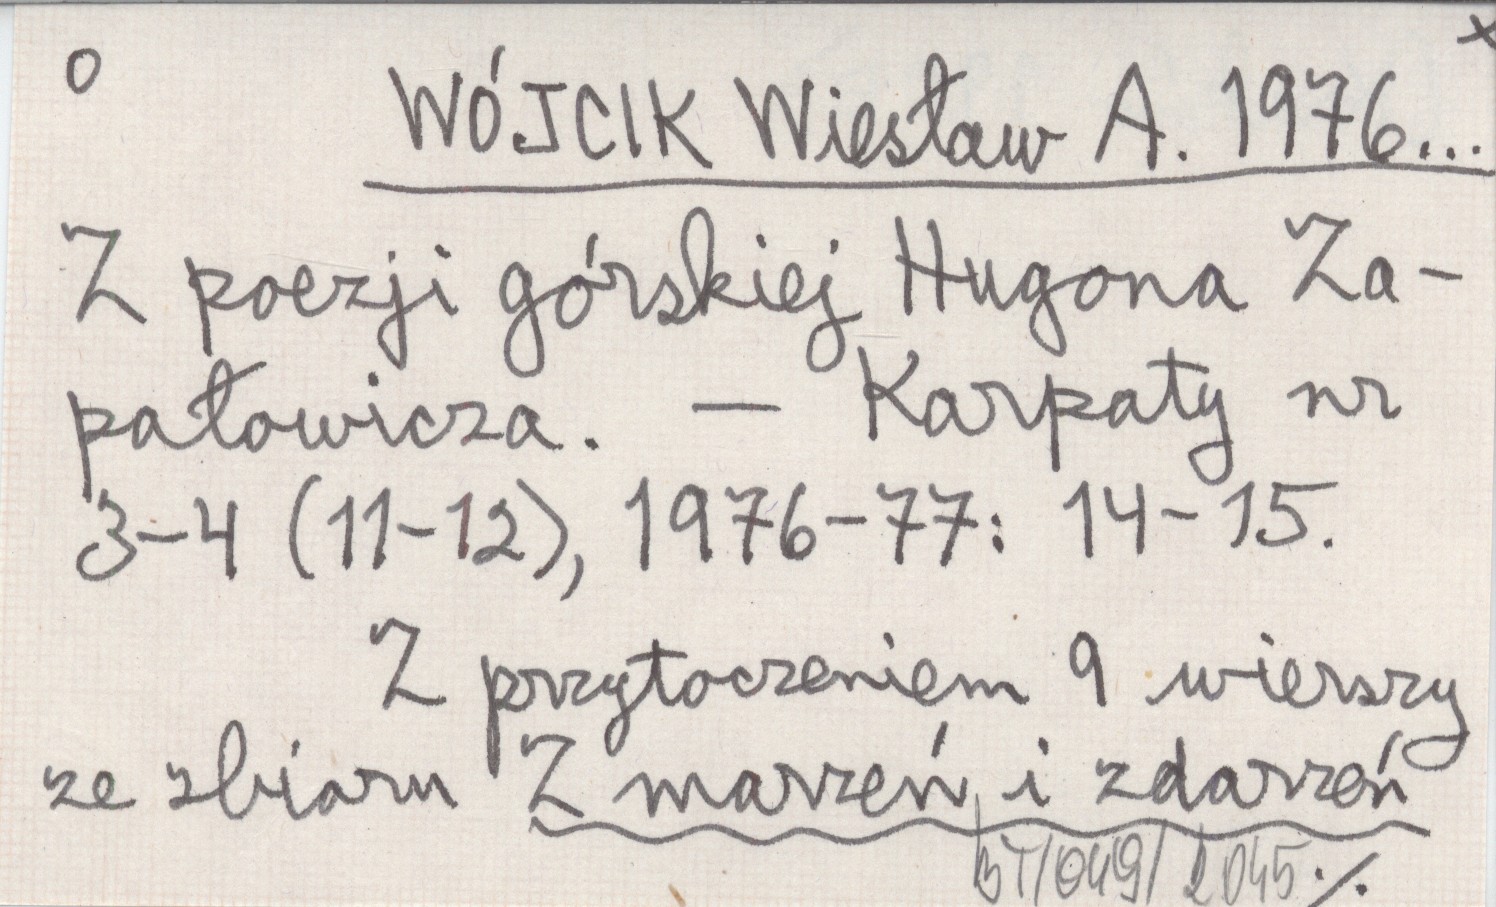 o x
WÓJCIK Wiesław A. 1976...
Z poezji górskiej Hugona Za-
pałowicza. — Karpaty nr
3-4 (11-12), 1976-77: 14-15.
Z przytoczeniem 9 wierszy
ze zbioru Z marzeń i zdarzeń
BT/049/2045 ./.